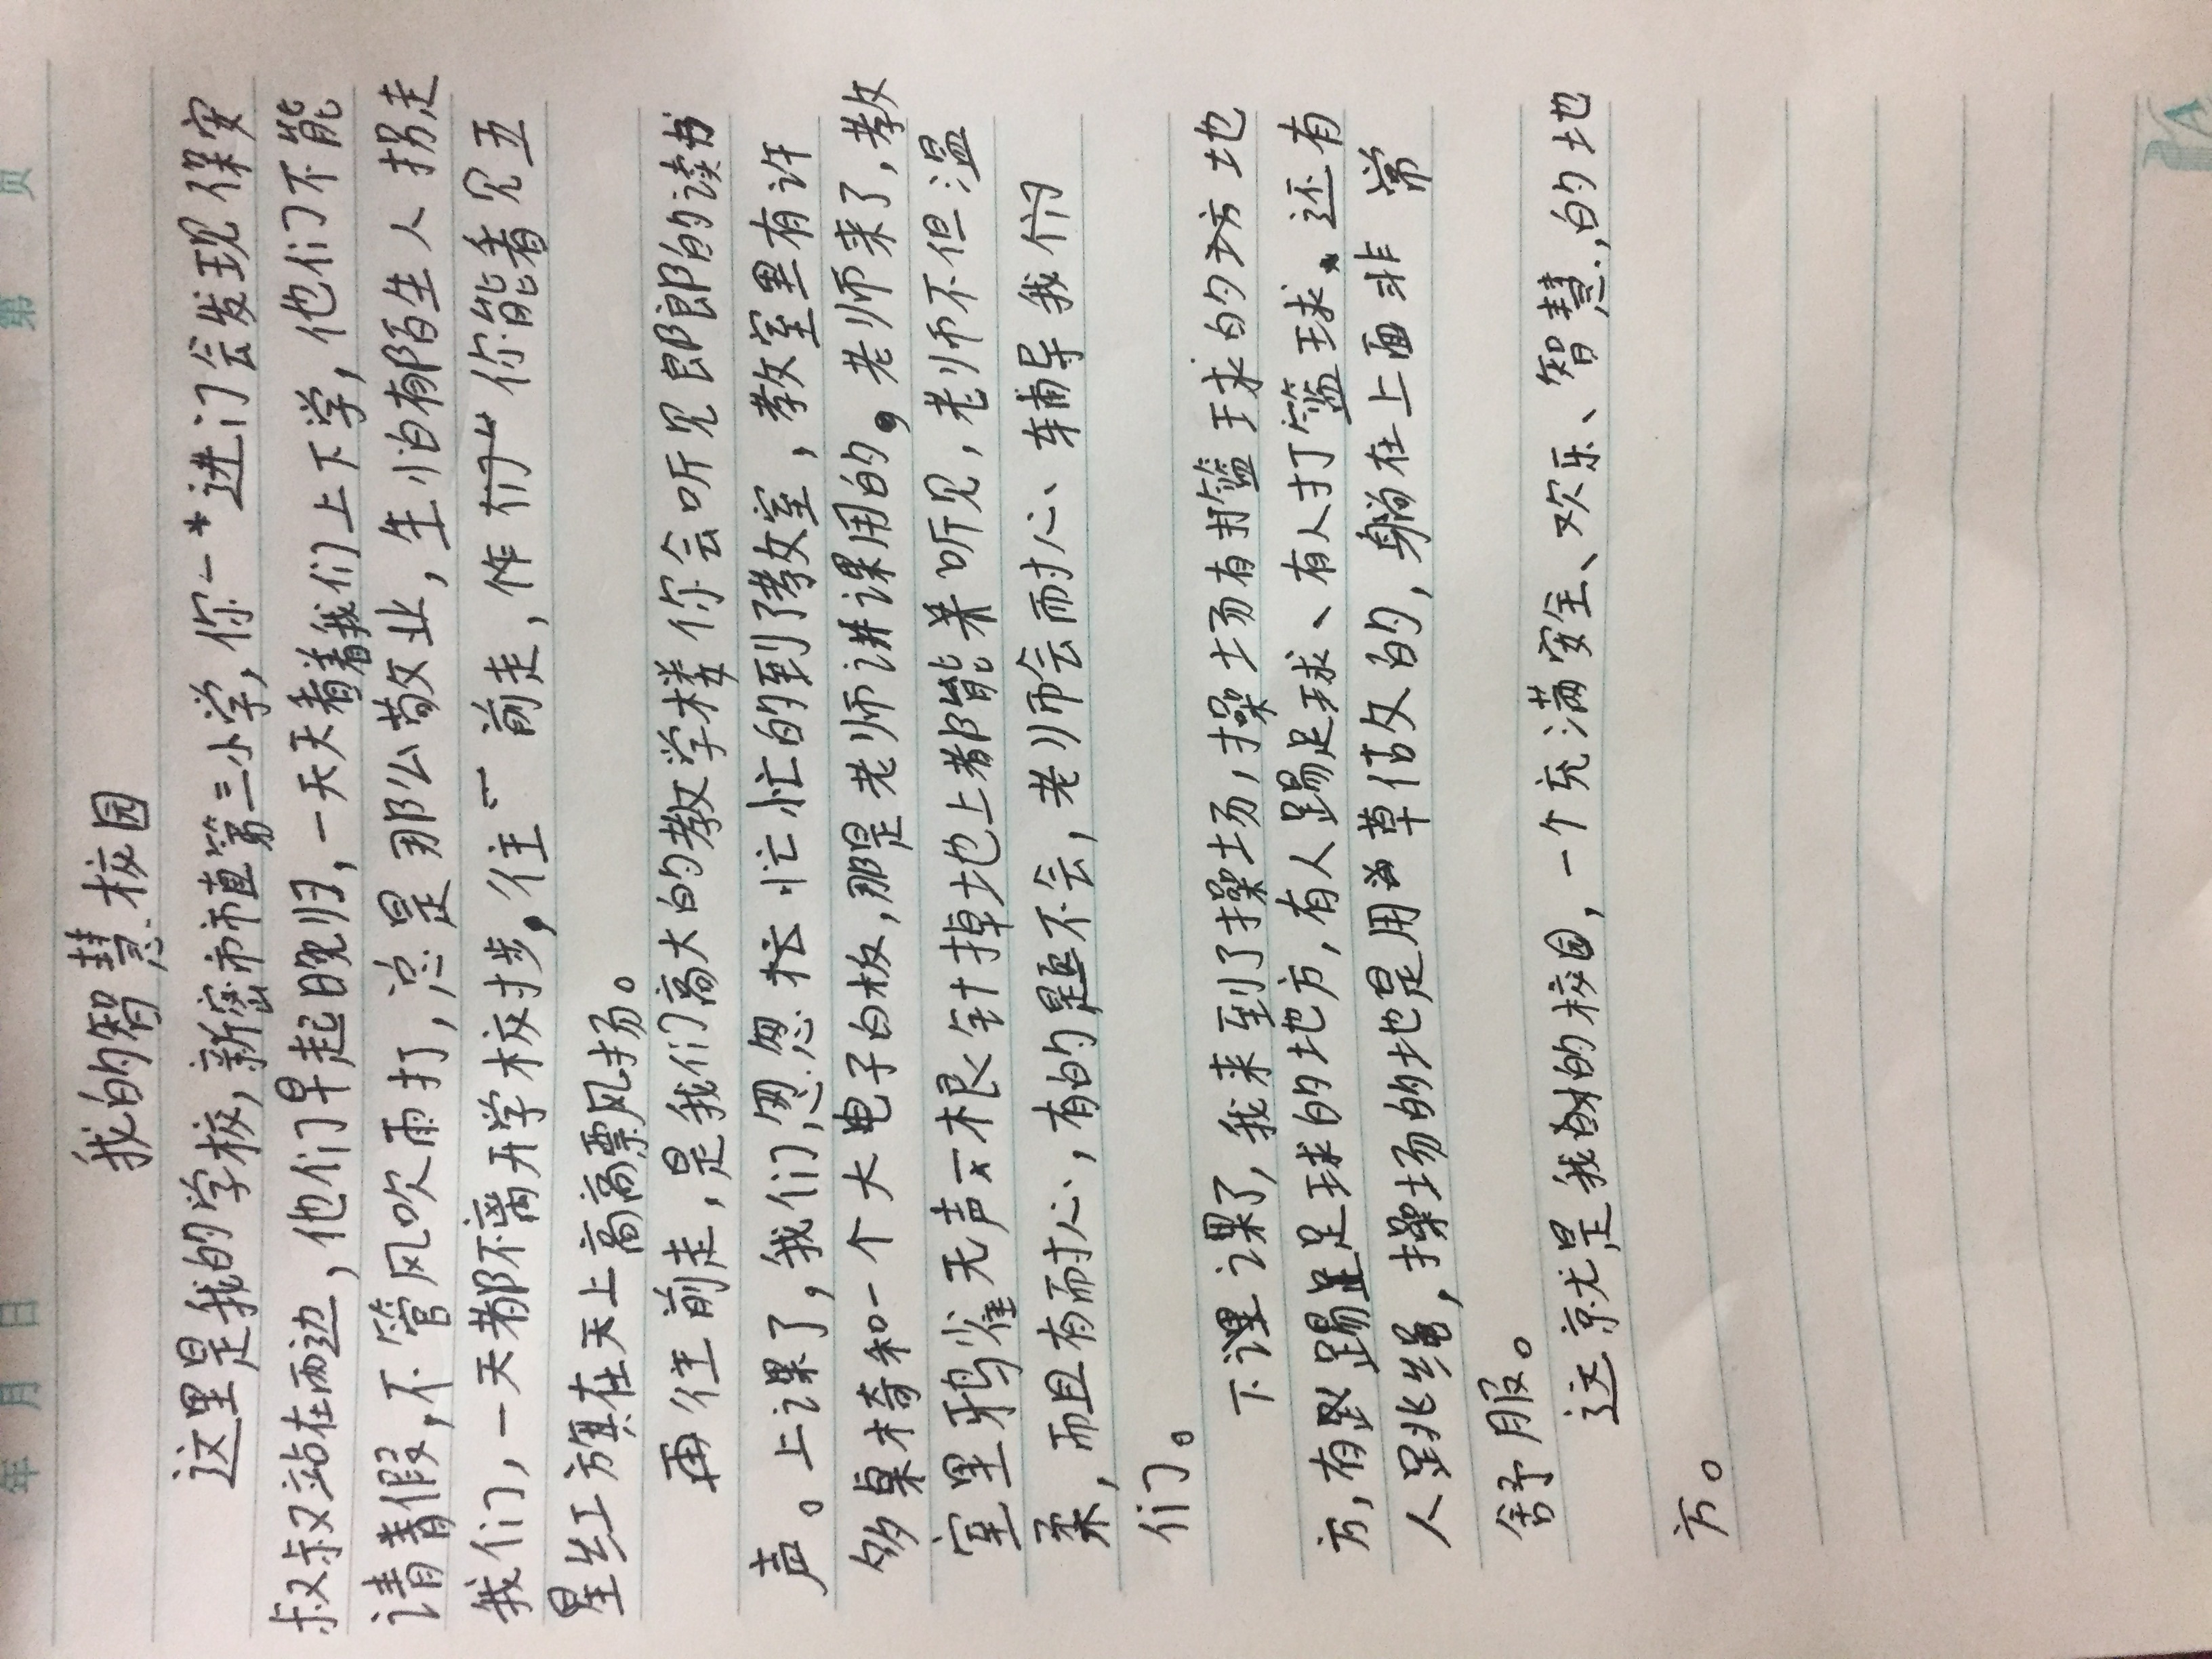 第 页
年 月 日
我的智慧校园
这里是我的学校，新密市市直第三小学，你一进门会发现保安
叔叔站在两边，他们早起晚归，一天天看着我们上下学，他们不能
请假，不管风吹雨打，总是那么敬业，生怕有陌生人拐走
我们，一天都不离开学校寸步，往前走，你能看见五
星红旗在天上高高票风扬。
再往前走，是我们高大的教学楼你会听见郎郎的读书
声。上课了，我们匆匆忙忙的到了教室，教室里有许
多桌椅和一个大电子白板，那是老师讲课用的。老师来了，教
室里鸦雀无声一根针掉地上都能听见，老师不但温
柔，而且有耐心，有的题不会，老师会耐心、辅导我们
们。
下课了，我来到了操场，操场有打篮球的地
方，有踢足球的地方，有人踢足球、有人打篮球、还有
人跳绳，操场的地是用草做的，躺在上面非常
舒服。
这就是我的校园，一个充满安全、欢乐、智慧的地
方。